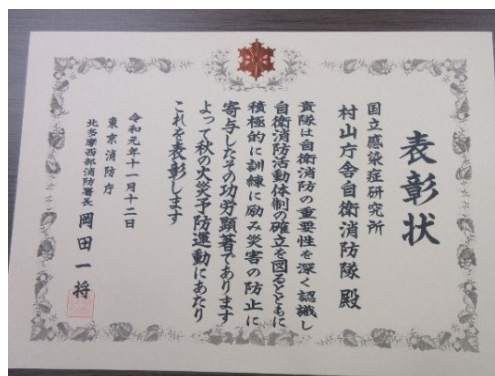 表彰状
国立感染症研究所
村山庁舎自衛消防隊 殿
貴隊は自衛消防の重要性を深く認識し
自衛消防活動体制の確立を図るとともに
積極的に訓練に励み災害の防止に
寄与したその功労顕著であります
よって秋の火災予防運動にあたり
これを表彰します
令和元年十一月十二日
東京消防庁
北多摩西部消防署長 岡田一将